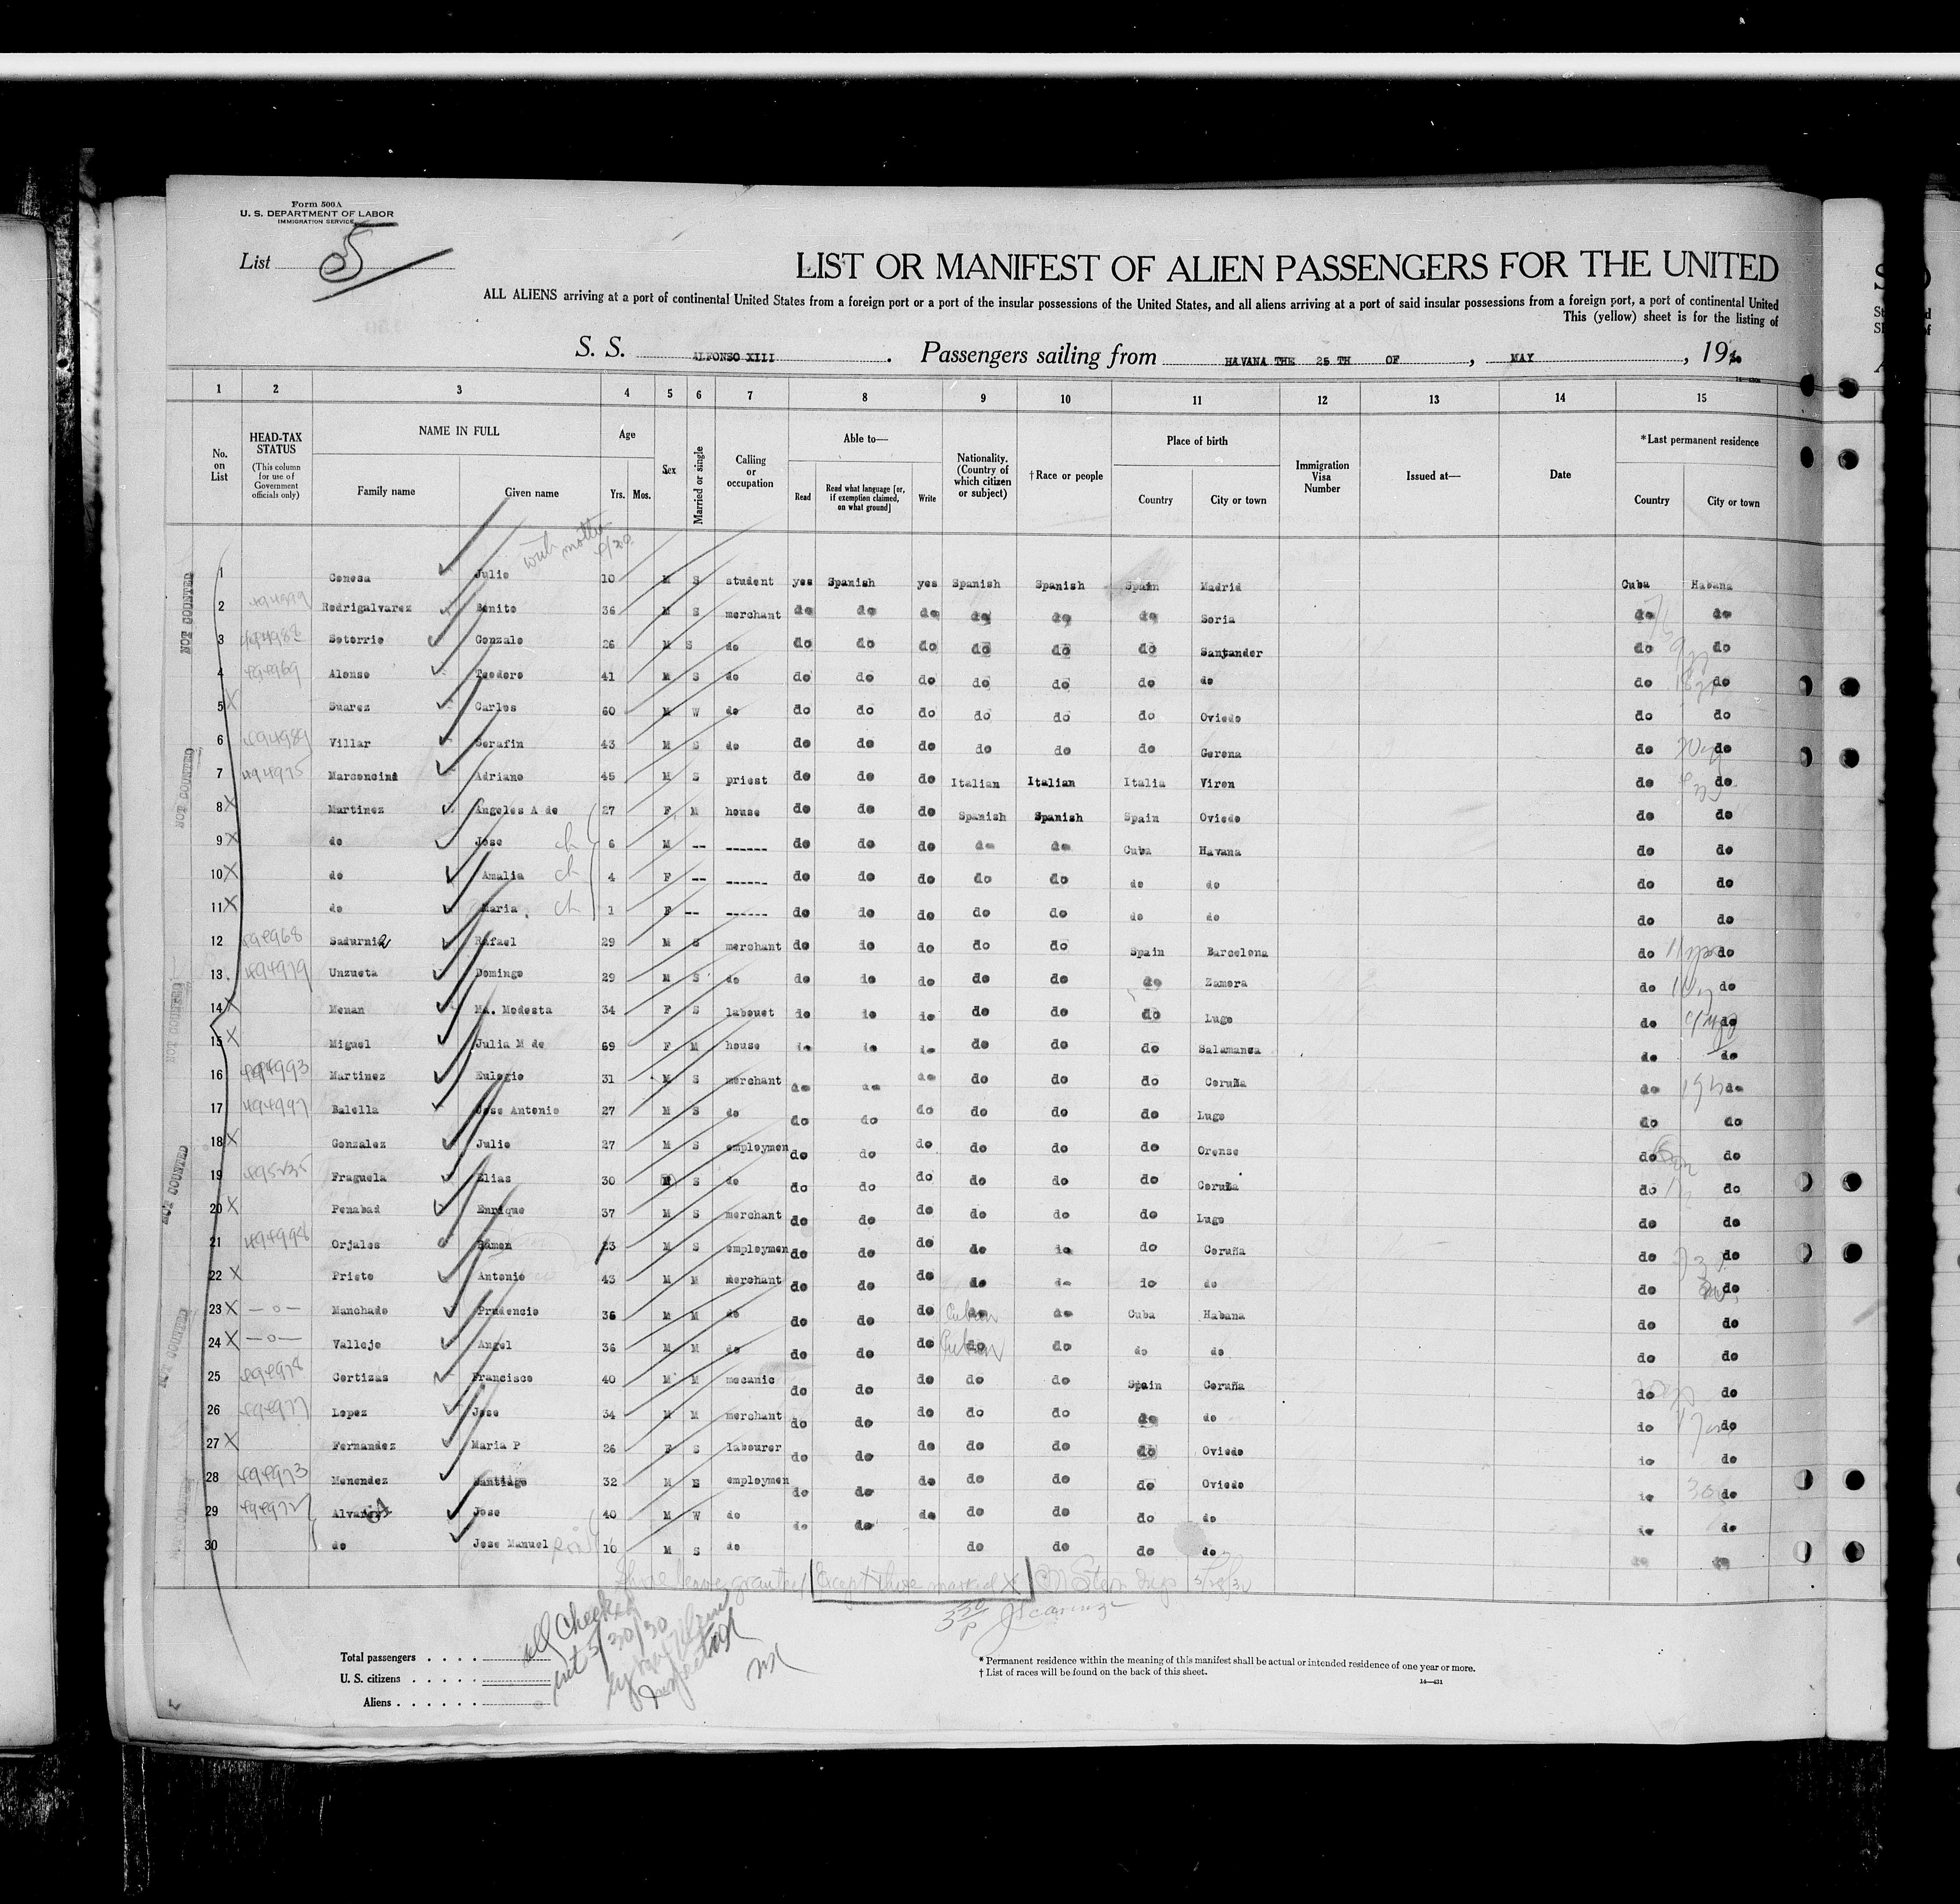 Form 500A
U. S. DEPARTMENT OF LABOR
IMMIGRATION SERVICE
List 5
LIST OR MANIFEST OF ALIEN PASSENGERS FOR THE UNITED
ALL ALIENS arriving at a port of continental United States from a foreign port or a port of the insular possessions of the United States, and all aliens arriving at a port of said insular possessions from a foreign port, a port of continental United
This (yellow) sheet is for the listing of
S. S. ALFONSO XIII. Passengers sailing from HAVANA THE 25 TH OF, MAY, 19
1 2 3 4 5 6 7 8 9 10 11 12 13 14 15
No. on List HEAD-TAX STATUS (This column for use of Government officials only) NAME IN FULL Family name Given name Age Yrs. Mos. Sex Married or single Calling or occupation Able to— Read Read what language [or, if exemption claimed, on what ground] Write Nationality. (Country of which citizen or subject) †Race or people Place of birth Country City or town Immigration Visa Number Issued at— Date *Last permanent residence Country City or town
with mother
1 Conesa Julio 10 M S student yes Spanish yes Spanish Spanish Spain Madrid Cuba Habana
2 Rodrigalvarez Benito 36 M S merchant do do do do do do Soria do do
3 Setorrio Gonzalo 26 M S do do do do do do do Santander do do
4 494969 Alonso Teodoro 41 M S do do do do do do do do do do
5 X Suarez Carlos 60 M W do do do do do do do Oviedo do do
6 494989 Villar Serafin 43 M S do do do do do do do Gerona do do
7 494975 Marconcini Adriano 45 M S priest do do do Italian Italian Italia Viren do do
8 X Martinez Angeles A de 27 F M house do do do Spanish Spanish Spain Oviedo do do
9 X do Jose ch 6 M -- ------ do do do do do Cuba Havana do do
10 X do Amalia ch 4 F -- ------ do do do do do do do do do
11 X do Maria ch 1 F -- ------ do do do do do do do do do
12 494968 Sadurni Rafael 29 M S merchant do do do do do Spain Barcelona do do
13 494979 Unzueta Domingo 29 M S do do do do do do do Zamora do do
14 X Menan Ma. Modesta 34 F S labouet do do do do do do Lugo do do
15 X Miguel Julia M de 59 F M house do do do do do do Salamanca do do
16 494993 Martinez Eulogio 31 M S merchant do do do do do do Coruña do do
17 494997 Balella Jose Antonio 27 M S do do do do do do do Lugo do do
18 X Gonzalez Julio 27 M S employmen do do do do do do Orense do do
19 Fraguela Elias 30 M S do do do do do do do Coruña do do
20 X Penabad Enrique 37 M S merchant do do do do do do Lugo do do
21 494998 Orjales Ramon 23 M S employmen do do do do do do Coruña do do
22 X Prieto Antonio 43 M M merchant do do do do do do do do do
23 X —o— Manchado Prudencio 36 M M do do do do do Cuban do Cuba Habana do do
24 X —o— Vallejo Angel 36 M M do do do do do Cuban do do do do do
25 494978 Cortizas Francisco 40 M M mecanic do do do do do Spain Coruña do do
26 494977 Lopez Jose 34 M M merchant do do do do do do do do do
27 X Fernandez Maria P 26 F S labourer do do do do do do Oviedo do do
28 494973 Menendez Santiago 32 M S employmen do do do do do do Oviedo do do
29 494972 Alvarez Jose 40 M W do do do do do do do do do do
30 do Jose Manuel 10 M S do do do do do do do
NOT COUNTED
NOT COUNTED
NOT COUNTED
NOT COUNTED
NOT COUNTED
Shore leave granted except those marked X
5/28/30
3 30 P
All Checked
out 5/30/30
by
Inspector
Total passengers
U. S. citizens
Aliens
* Permanent residence within the meaning of this manifest shall be actual or intended residence of one year or more.
† List of races will be found on the back of this sheet.
14—431